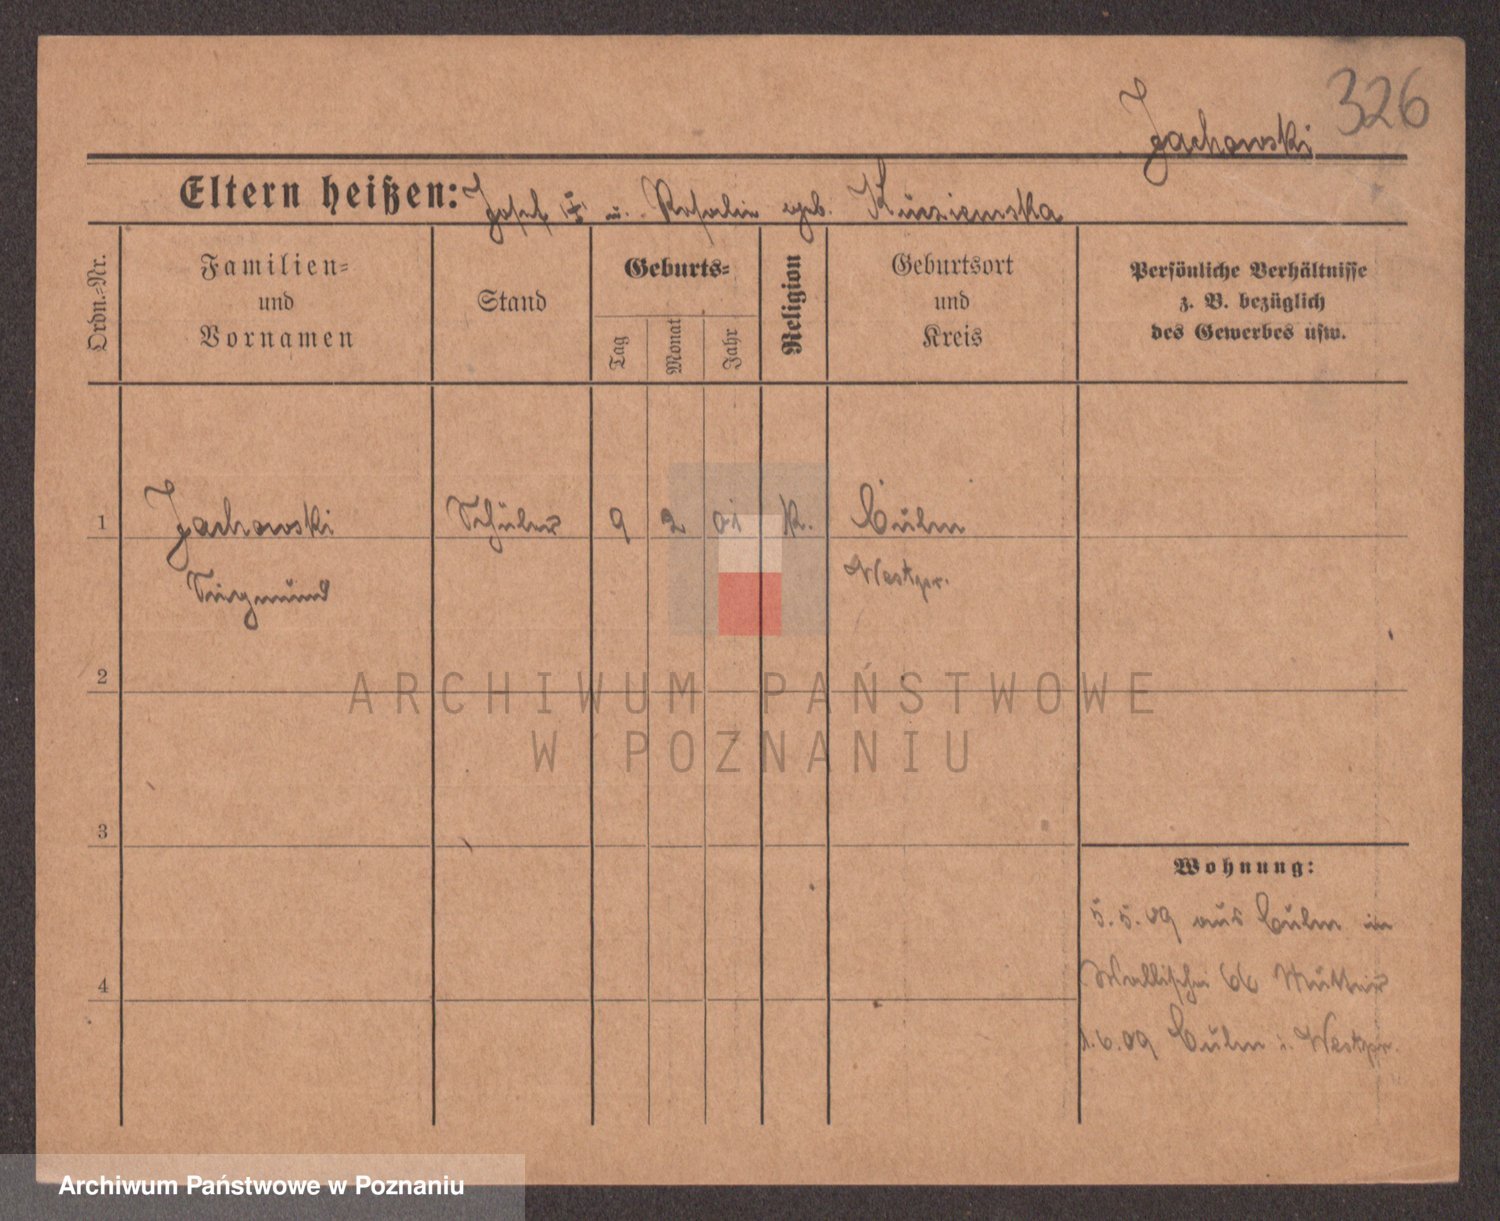 326
Jachowski
Eltern heißen: Josef u. Rosalie geb.
Ordn.-Nr.
Familien-
und
Vornamen
Stand
Geburts-
Tag
Monat
Jahr
Religion
Geburtsort
und
Kreis
Persönliche Verhältnisse
z. B. bezüglich
des Gewerbes usw.
1
Jachowski
Schüler
9
2
01
k.
Culm
Siegmund
Westpr.
2
ARCHIWUM PAŃSTWOWE
W POZNANIU
3
Wohnung:
5.5.09 aus Culm in
4
Wallischei 66 Mutter
1.6.09 Culm i. Westpr.
Archiwum Państwowe w Poznaniu